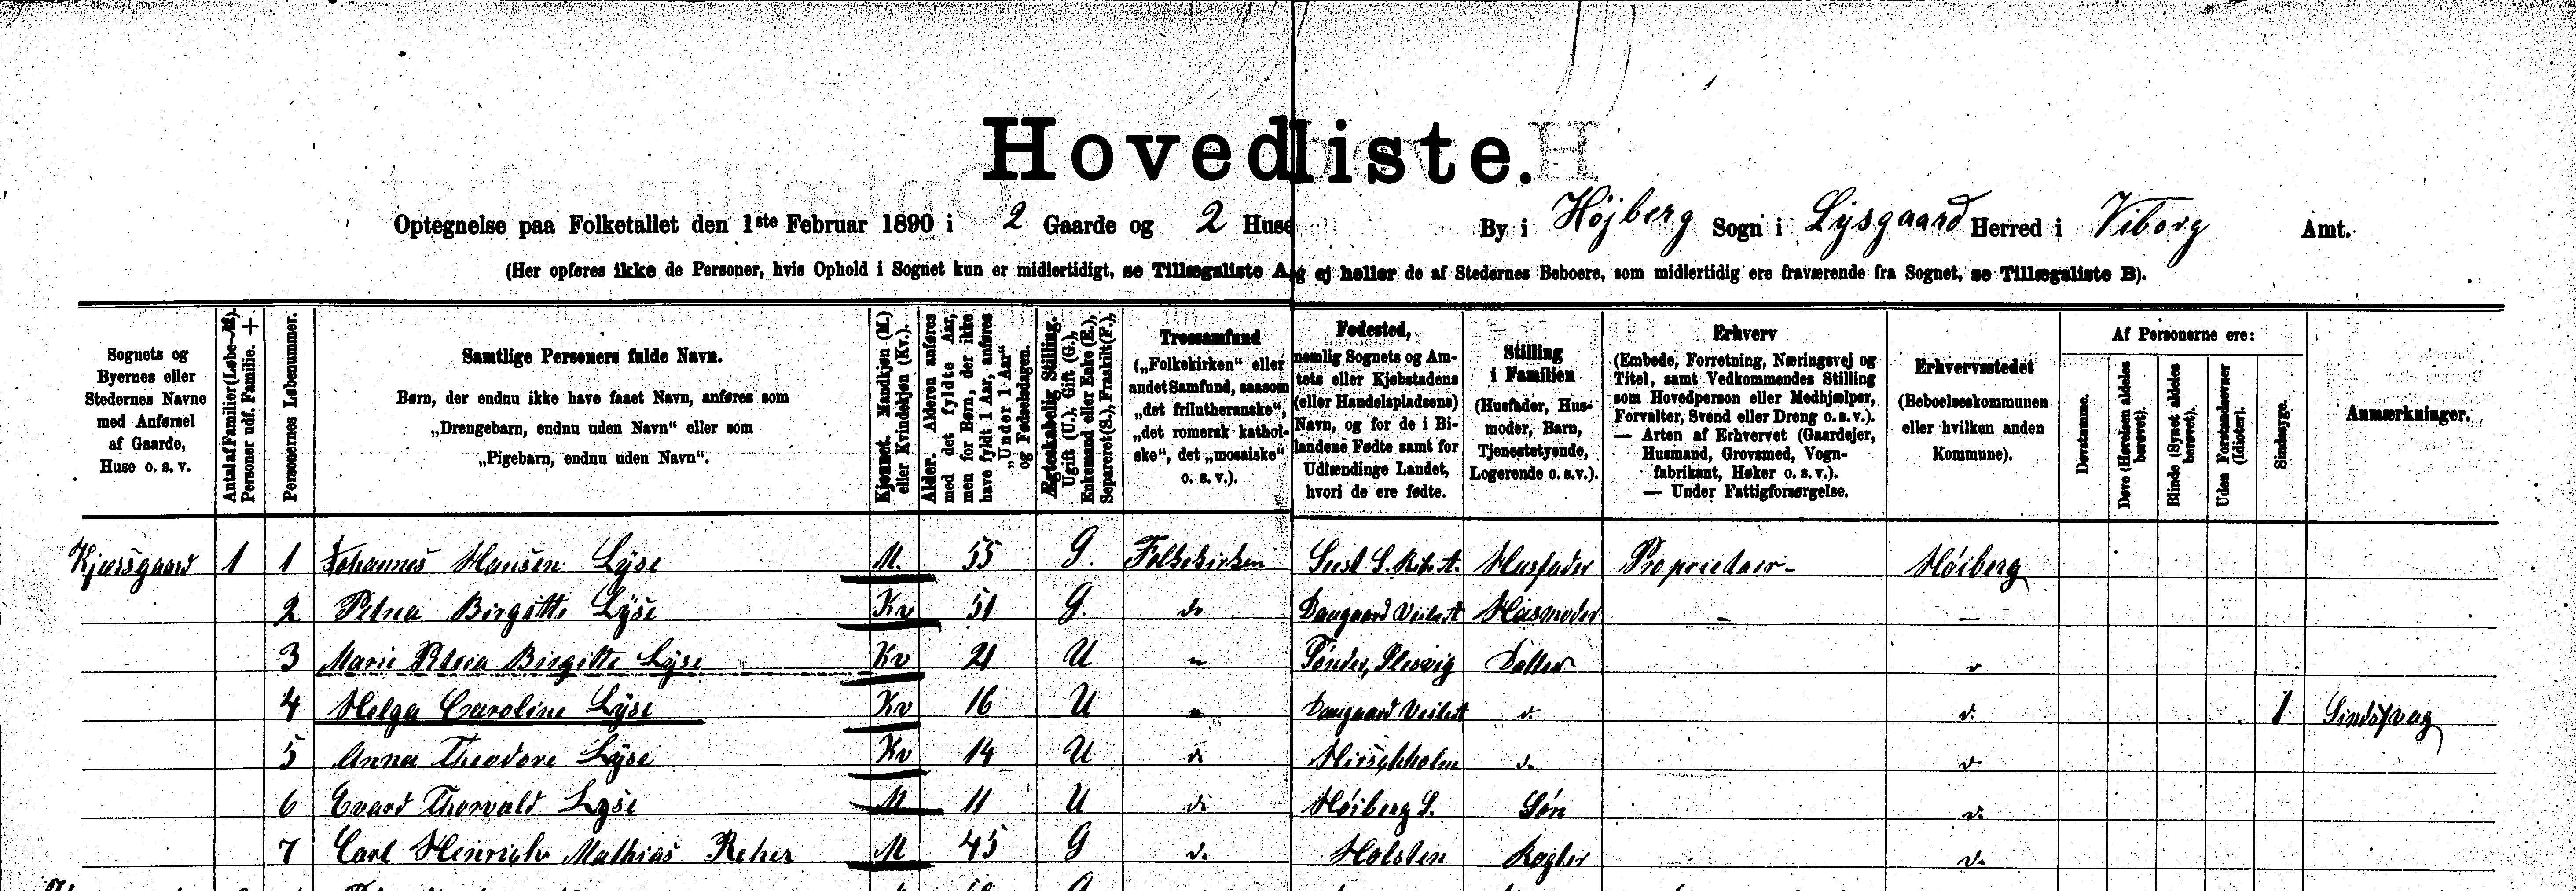 Hovedliste.
Optegnelse paa Folketallet den 1ste Februar 1890 i 2 Gaarde og 2 Huse By i Højberg Sogn i Lysgaard Herred i Viborg Amt.
(Her opføres ikke de Personer, hvis Ophold i Sognet kun er midlertidigt, se Tillægsliste A, og ej heller de af Stedernes Beboere, som midlertidig ere fraværende fra Sognet, se Tillægsliste B).
Sognets og
Byernes eller
Stedernes Navne
med Anførsel
af Gaarde,
Huse o. s. v.
Antal af Familier (Løbe-№).
Personer udf. Familie. +
Personernes Løbenummer.
Samtlige Personers fulde Navn.
Børn, der endnu ikke have faaet Navn, anføres som
„Drengebarn, endnu uden Navn“ eller som
„Pigebarn, endnu uden Navn“.
Kjønnet. Mandkjøn (M.)
eller Kvindekjøn (Kv.).
Alder. Alderen anføres
med det fyldte Aar,
men for Børn, der ikke
have fyldt 1 Aar, anføres
„Under 1 Aar“
og Fødselsdagen.
Ægteskabelig Stilling.
Ugift (U.), Gift (G.),
Enkemand eller Enke (E.),
Separeret (S.), Fraskilt (F.),
Trossamfund
(„Folkekirken“ eller
andet Samfund, saasom
„det frilutheranske“,
„det romersk kathol-
ske“, det „mosaiske“
o. s. v.).
Fødested,
nemlig Sognets og Am-
tets eller Kjøbstadens
(eller Handelspladsens)
Navn, og for de i Bi-
landene Fødte samt for
Udlændinge Landet,
hvori de ere fødte.
Stilling
i Familien
(Husfader, Hus-
moder, Barn,
Tjenestetyende,
Logerende o. s. v.).
Erhverv
(Embede, Forretning, Næringsvej og
Titel, samt Vedkommendes Stilling
som Hovedperson eller Medhjælper,
Forvalter, Svend eller Dreng o. s. v.).
— Arten af Erhvervet (Gaardejer,
Husmand, Grovsmed, Vogn-
fabrikant, Høker o. s. v.).
— Under Fattigforsørgelse.
Erhvervsstedet
(Beboelseskommunen
eller hvilken anden
Kommune).
Af Personerne ere:
Døvstumme.
Døve (Hørelsen aldeles
berøvet).
Blinde (Synet aldeles
berøvet).
Uden Forstandsevner
(Idioter).
Sindssyge.
Anmærkninger.
Kjærsgaard 1 1 Johannes Hansen Lyse M. 55 G. Folkekirken Seest S. Rib. A. Husfader Proprietær - Høiberg
2 Petrea Birgitte Lyse Kv 51 G. do Daugaard Veile A Husmoder - -
3 Marie Petrea Birgitte Lyse Kv 21 U " Tønder, Slesvig Datter
4 Helga Caroline Lyse Kv 16 U " Daugaard Veile A d. d. 1 Sindssvag
5 Anna Theodore Lyse Kv 14 U do Hirschholm d. d.
6 Evard Thorvald Lyse M 11 U do Høiberg S. Søn d.
7 Carl Henrich Mathias Reher M 45 G d. Holsten Røgter d.